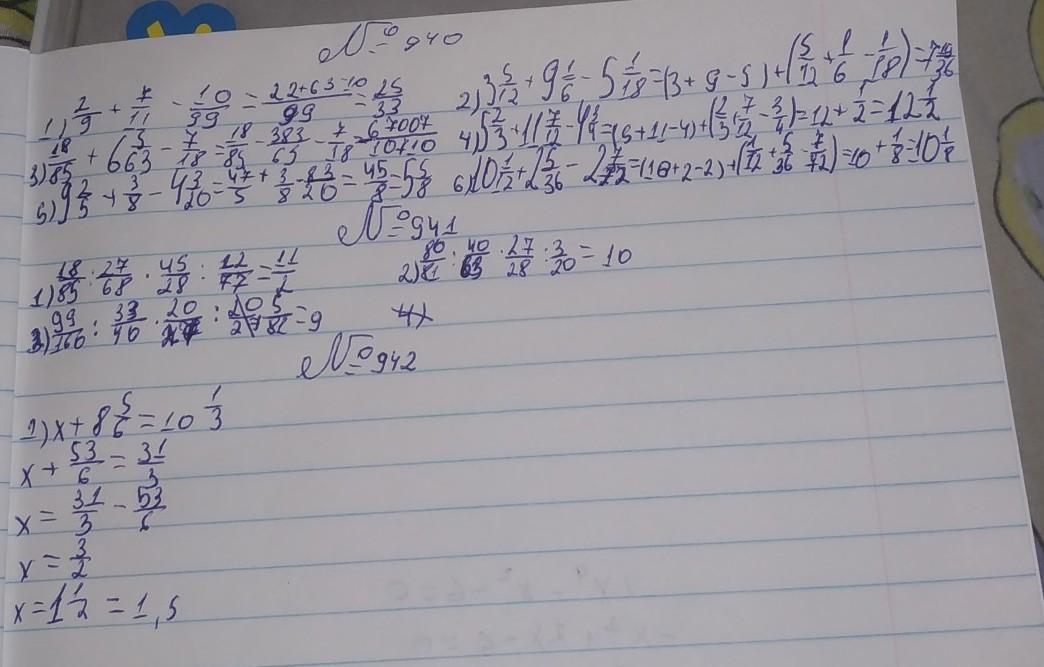 № 940
1) 2/9 + 7/11 - 10/99 = (22+63-10)/99 = 25/33
2) 3 5/12 + 9 1/6 - 5 1/18 = (3 + 9 - 5) + (5/12 + 1/6 - 1/18) = 7 19/36
3) 18/85 + 6 3/63 - 7/18 = 18/85 - 383/63 - 7/18 = 67007/10710
4) 5 2/3 + 11 7/12 - 4 3/4 = (5 + 11 - 4) + (2/3 + 7/12 - 3/4) = 12 + 1/2 = 12 1/2
5) 9 2/5 + 3/8 - 4 3/20 = 47/5 + 3/8 - 83/20 = 45/8 = 5 5/8
6) 10 1/12 + 2 5/36 - 2 7/72 = (10 + 2 - 2) + (1/12 + 5/36 - 7/72) = 10 + 1/8 = 10 1/8
№ 941
1) 18/85 : 27/68 · 45/28 : 12/77 = 11/2
2) 80/81 : 40/63 · 27/28 : 3/20 = 10
3) 99/160 : 33/40 · 20/27 : 5/81 = 9
4)
№ 942
1) x + 8 5/6 = 10 1/3
x + 53/6 = 31/3
x = 31/3 - 53/6
x = 3/2
x = 1 1/2 = 1,5